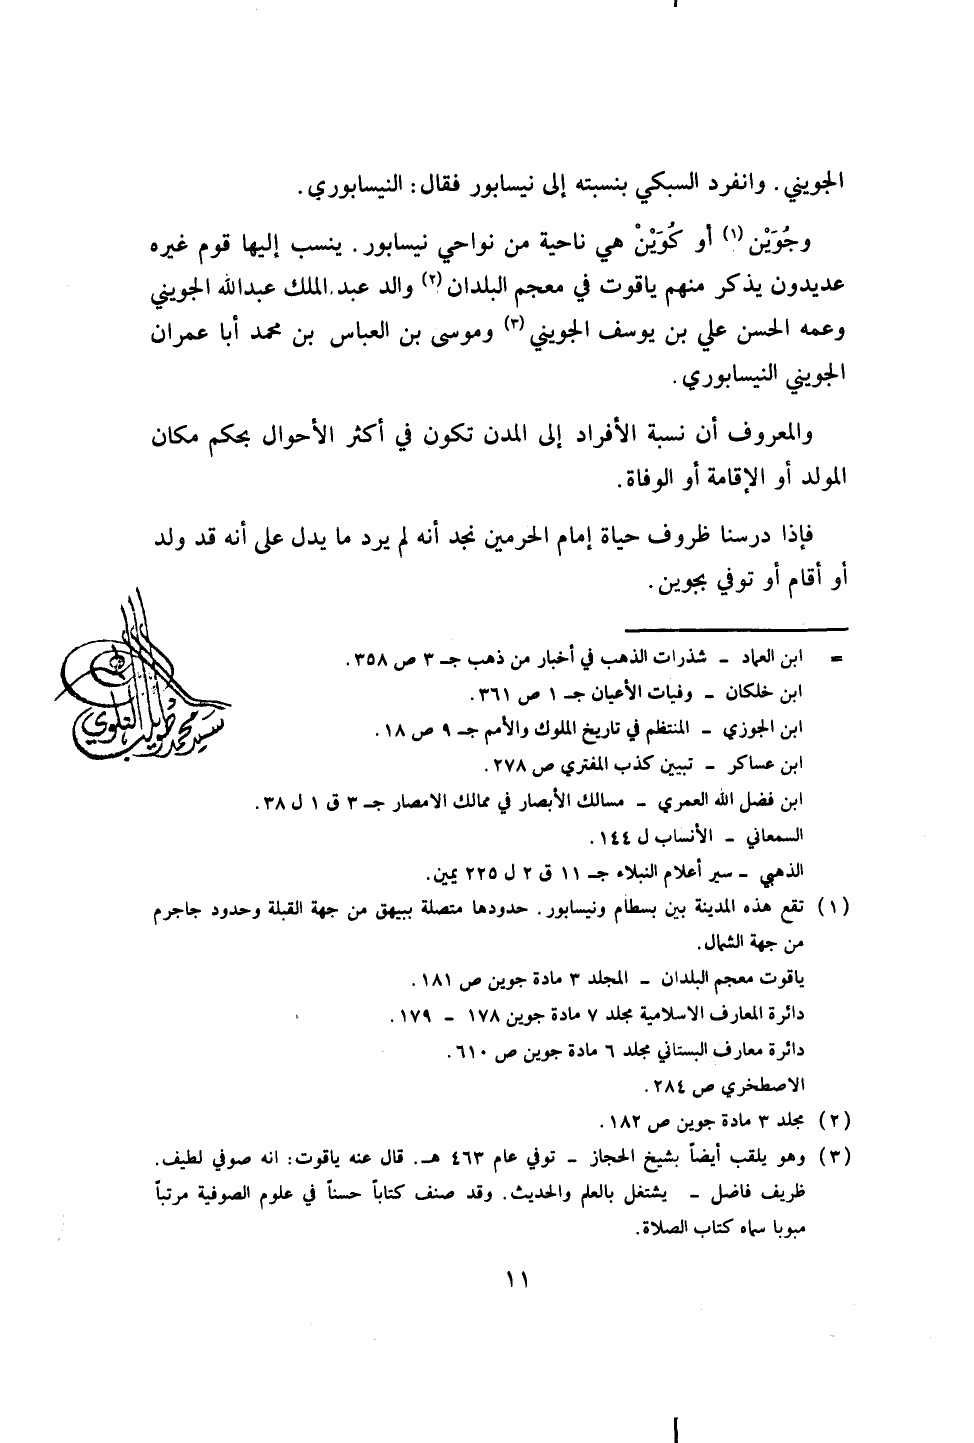 الجويني. وانفرد السبكي بنسبته إلى نيسابور فقال: النيسابوري.
وجُوَيْن (١) أو كُوَيْنْ هي ناحية من نواحي نيسابور. ينسب إليها قوم غيره
عديدون يذكر منهم ياقوت في معجم البلدان (٢) والد عبد الملك عبدالله الجويني
وعمه الحسن علي بن يوسف الجويني (٣) وموسى بن العباس بن محمد أبا عمران
الجويني النيسابوري.
والمعروف أن نسبة الأفراد إلى المدن تكون في أكثر الأحوال بحكم مكان
المولد أو الإقامة أو الوفاة.
فإذا درسنا ظروف حياة إمام الحرمين نجد أنه لم يرد ما يدل على أنه قد ولد
أو أقام أو توفي بجوين.
= ابن العماد – شذرات الذهب في أخبار من ذهب جـ ٣ ص ٣٥٨.
ابن خلكان – وفيات الأعيان جـ ١ ص ٣٦١.
ابن الجوزي – المنتظم في تاريخ الملوك والأمم جـ ٩ ص ١٨.
ابن عساكر – تبيين كذب المفتري ص ٢٧٨.
ابن فضل الله العمري – مسالك الأبصار في ممالك الامصار جـ ٣ ق ١ ل ٣٨.
السمعاني – الأنساب ل ١٤٤.
الذهبي – سير أعلام النبلاء جـ ١١ ق ٢ ل ٢٢٥ يمين.
(١) تقع هذه المدينة بين بسطام ونيسابور. حدودها متصلة ببيهق من جهة القبلة وحدود جاجرم
من جهة الشمال.
ياقوت معجم البلدان – المجلد ٣ مادة جوين ص ١٨١.
دائرة المعارف الاسلامية مجلد ٧ مادة جوين ١٧٨ – ١٧٩.
دائرة معارف البستاني مجلد ٦ مادة جوين ص ٦١٠.
الاصطخري ص ٢٨٤.
(٢) مجلد ٣ مادة جوين ص ١٨٢.
(٣) وهو يلقب أيضاً بشيخ الحجاز – توفي عام ٤٦٣ هـ. قال عنه ياقوت: انه صوفي لطيف.
ظريف فاضل – يشتغل بالعلم والحديث. وقد صنف كتاباً حسناً في علوم الصوفية مرتباً
مبوبا سماه كتاب الصلاة.
١١